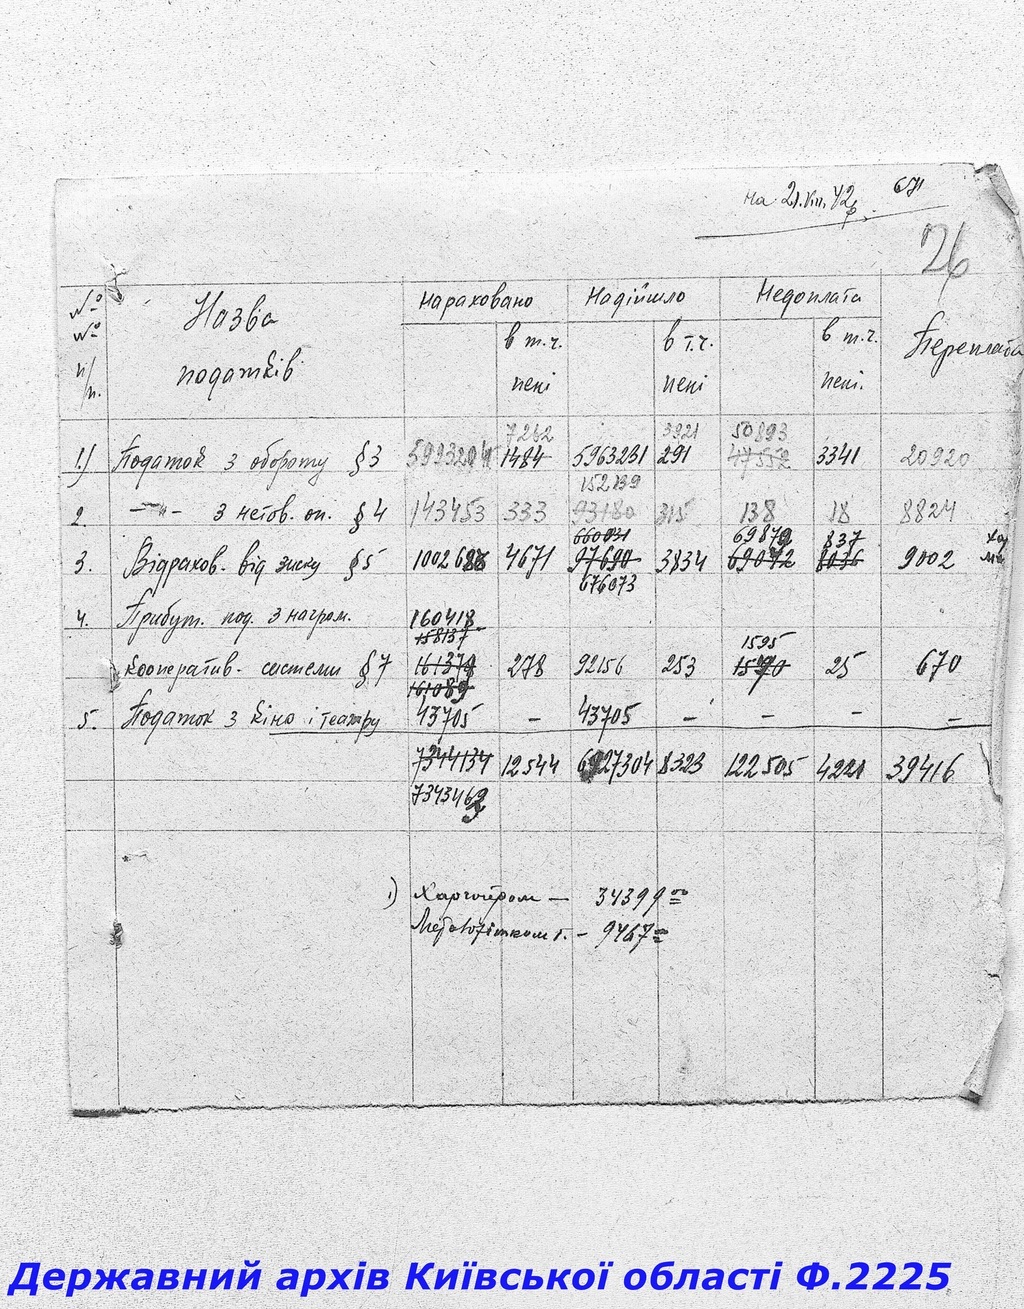 на 21.VIII.42р.
26
№№ п/п. Назва податків Нараховано Надійшло Недоплата Переплата
в т.ч. пені в т.ч. пені в т.ч. пені.
7262 3921 50893
1.) Податок з обороту § 3 5993204 1484 5963231 291 47552 3341 20920
152139
2. —"— з нетов. оп. § 4 143453 333 93180 315 138 18 8824
660031 69879 837
3. Відрахов. від зиску § 5 1002698 4671 97690 3834 69072 8036 9002
676073
4. Прибут. под. з нагром. 160418
158137 1595
кооператив. системи § 7 161379 278 92156 253 1590 25 670
161089
5. Податок з кіно і театру 43705 – 43705 – – – –
7344134 12544 6927304 8323 122505 4221 39416
7343463
1) — 34399
– 9467
Державний архів Київської області Ф.2225